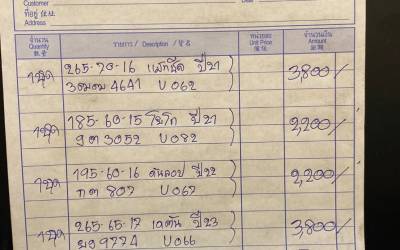 Customer
Date
ที่อยู่ 住址
Address
จำนวน Quantity 數量 รายการ / Description / 貨名 หน่วยละ Unit Price 價值 จำนวนเงิน Amount 銀碼
1ชุด 265-70-16 แม๊กซีส ปี21 3,800/
3ฒฒ 4641 U062
1ชุด 185-60-15 โยโก ปี21 2,200/
3052 U082
1ชุด 195-60-16 ดันลอป ปี22 2,200/
กต 807 U067
1ชุด 265-65-17 ปี23 3,800/
9774 U066